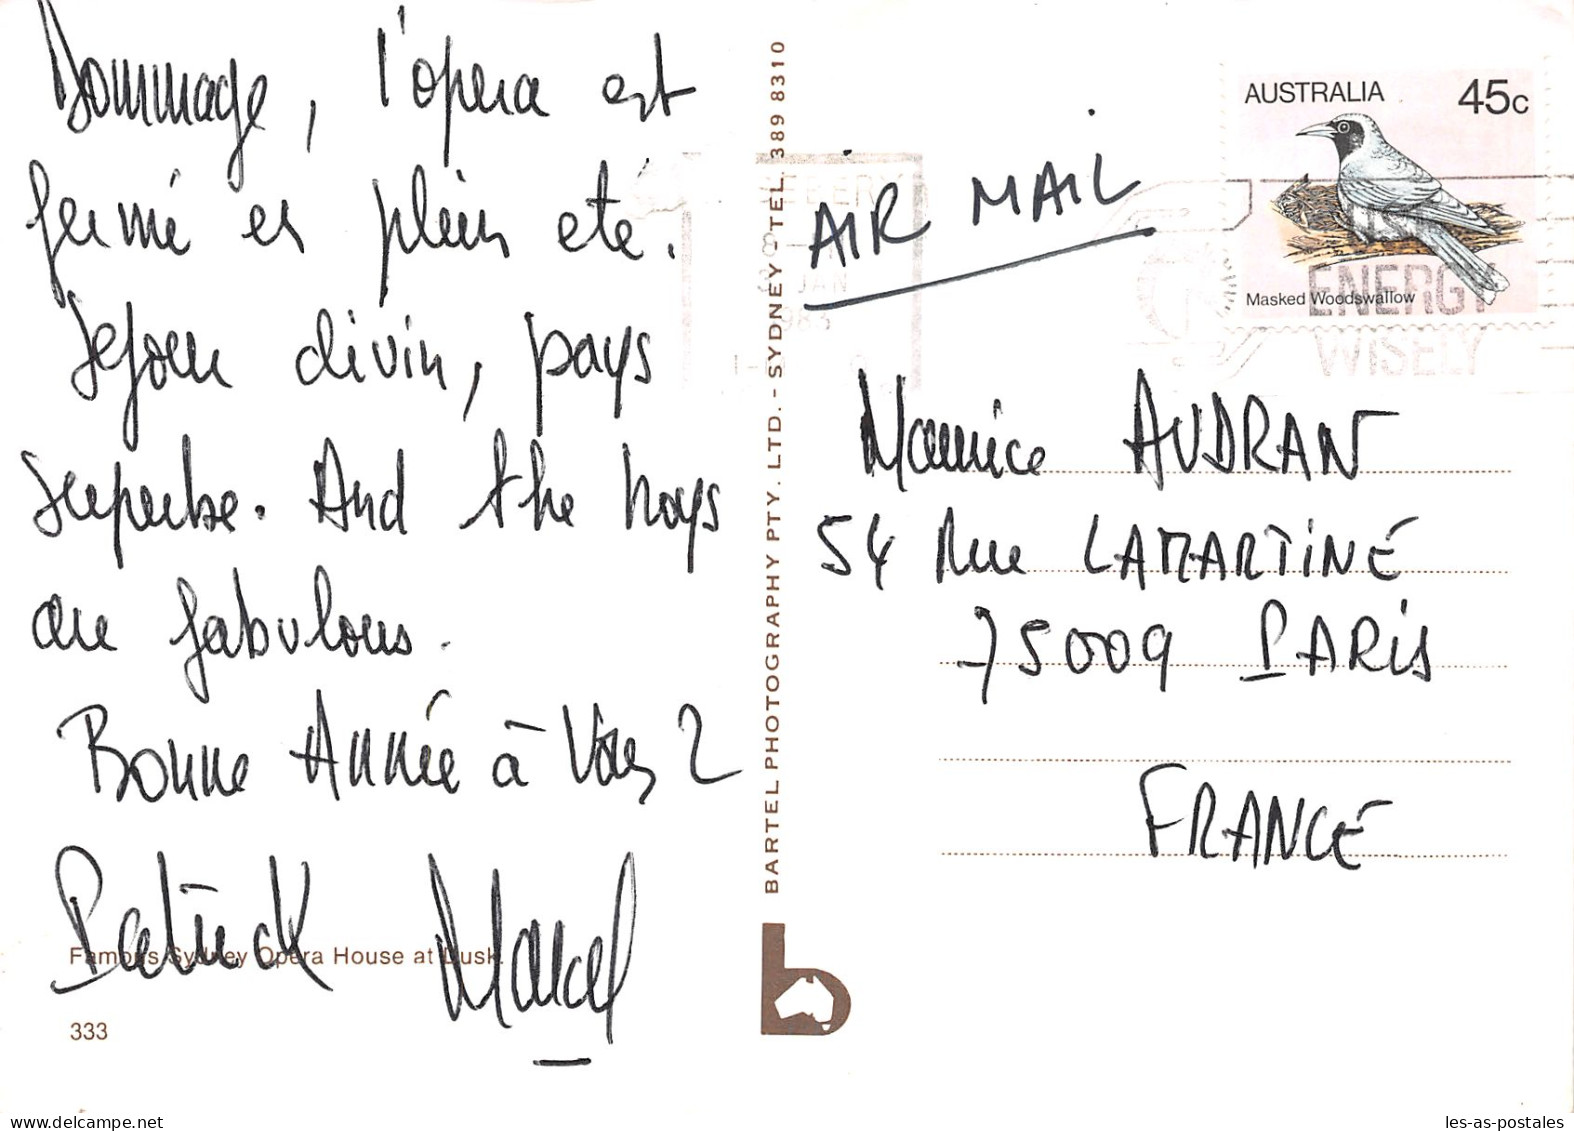 Dommage, l'opera est
fermé en plein eté.
Sejour divin, pays
superbe. And the boys
are fabulous.
Bonne Année à Vous 2
Patrick Marcel
Famous Sydney Opera House at Dusk.
333
BARTEL PHOTOGRAPHY PTY. LTD. - SYDNEY - TEL. 389 8310
AIR MAIL
AUSTRALIA 45c
Masked Woodswallow
JAN
1983
ENERGY
WISELY
Maurice AUDRAN
54 Rue LAMARTINE
75009 PARIS
FRANCE
les-as-postales